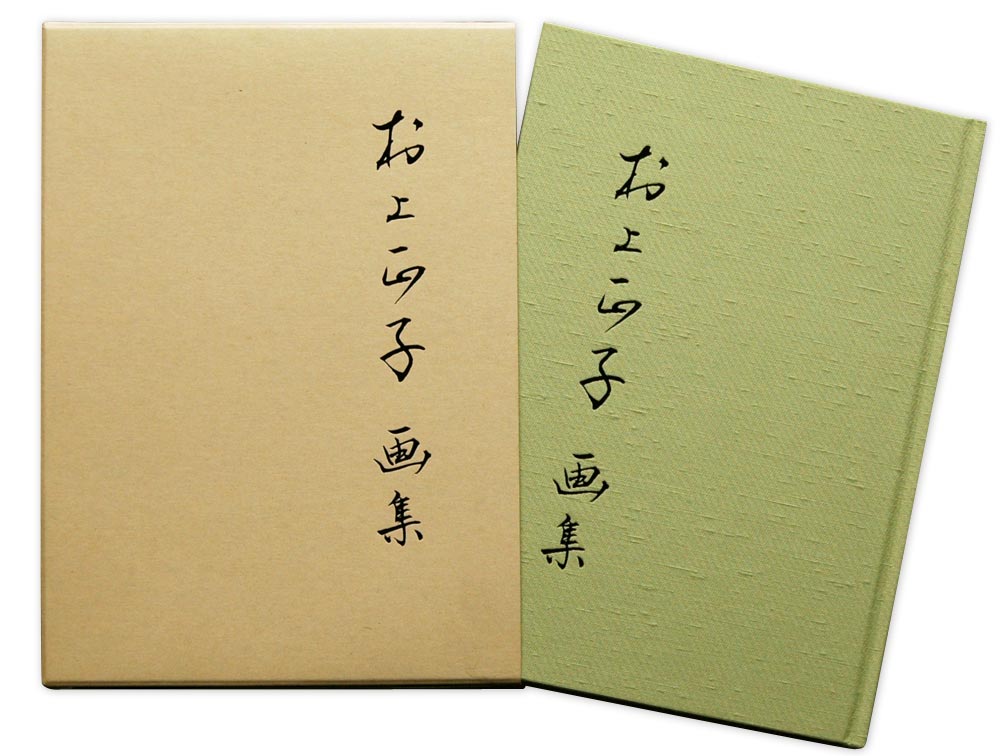 村上正子 画集
村上正子 画集